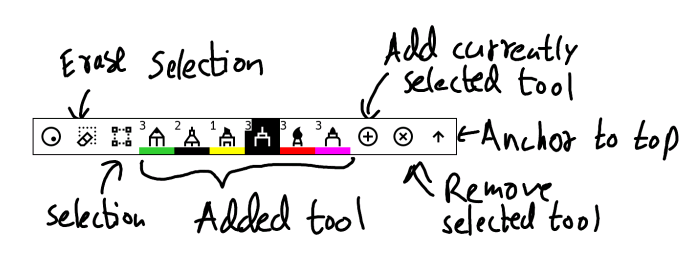 Erase Selection
Add currently
selected tool
3 2 1 3 3 3
Anchor to top
selection
Added tool
Remove
selected tool